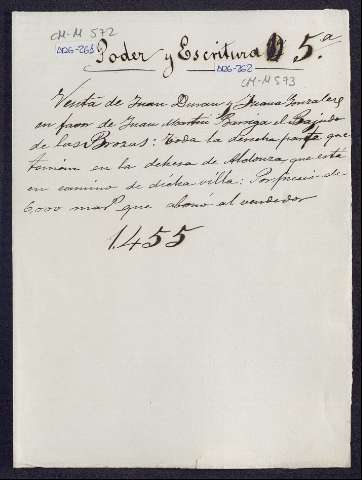 CM-M 572
ADG-261
Poder y Escritura D 5.ª
ADG-262
CM-M 573
Venta de Juan Duran y Juana Gonzalez
en favor de Juan Martin el
de las Brozas: Toda la derecha parte que
tenian en la dehesa de que está
en camino de dicha villa: Por precio de
6000 mar.s que abonó al vendedor
1455